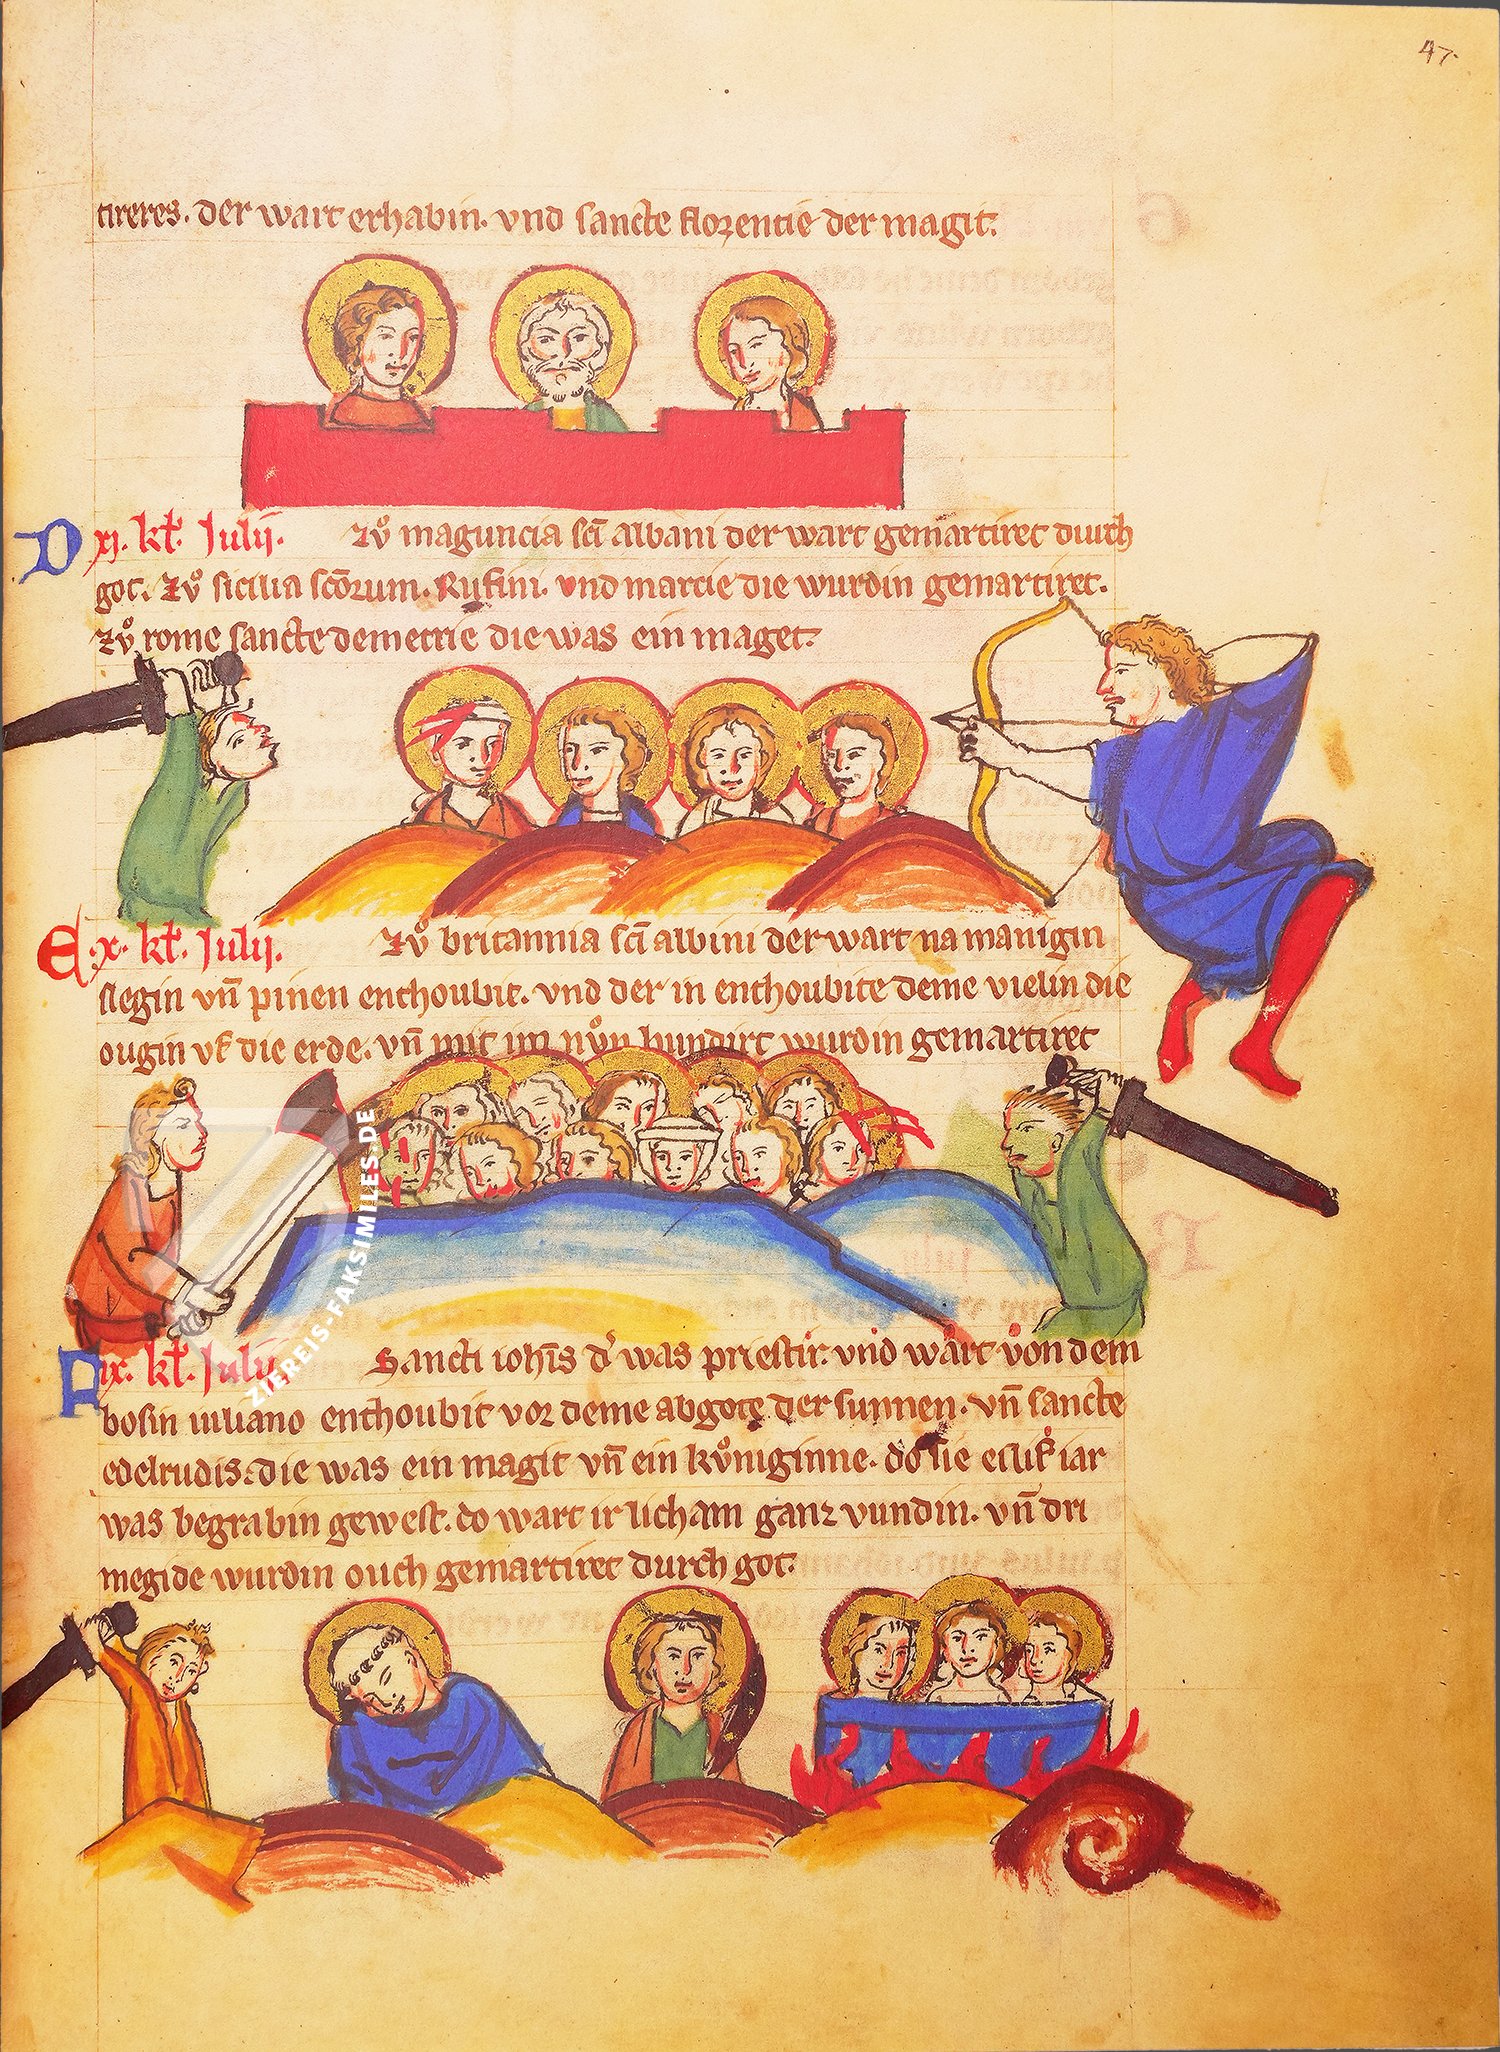 47.
tireres. der wart erhabin. vnd sancte florentie der magit.
D xj. kł. Julij. Zů maguncia scī albani der wart gemartiret durch
got. Zů sicilia scōrum. Rufini. vnd marcie die wurdin gemartiret.
Zů rome sancte demetrie die was ein maget.
E .x. kł. Julij. Zů britannia scī albini der wart na manigin
slegin vn̄ pinen enthoubit. vnd der in enthoubite deme vielin die
ougin vf die erde. vn̄ mit im nůn hundirt wurdin gemartiret
ix. kł. Julij Sancti iohīs d' was priestir. vnd wart von dem
bosin iuliano enthoubit vor deme abgote der sunnen. vn̄ sancte
edelrudis. die was ein magit vn̄ ein kůniginne. do sie eilif iar
was begrabin gewest. do wart ir licham ganz vundin. vn̄ dri
megide wurdin ouch gemartiret durch got.
ZIEREIS-FAKSIMILES.DE